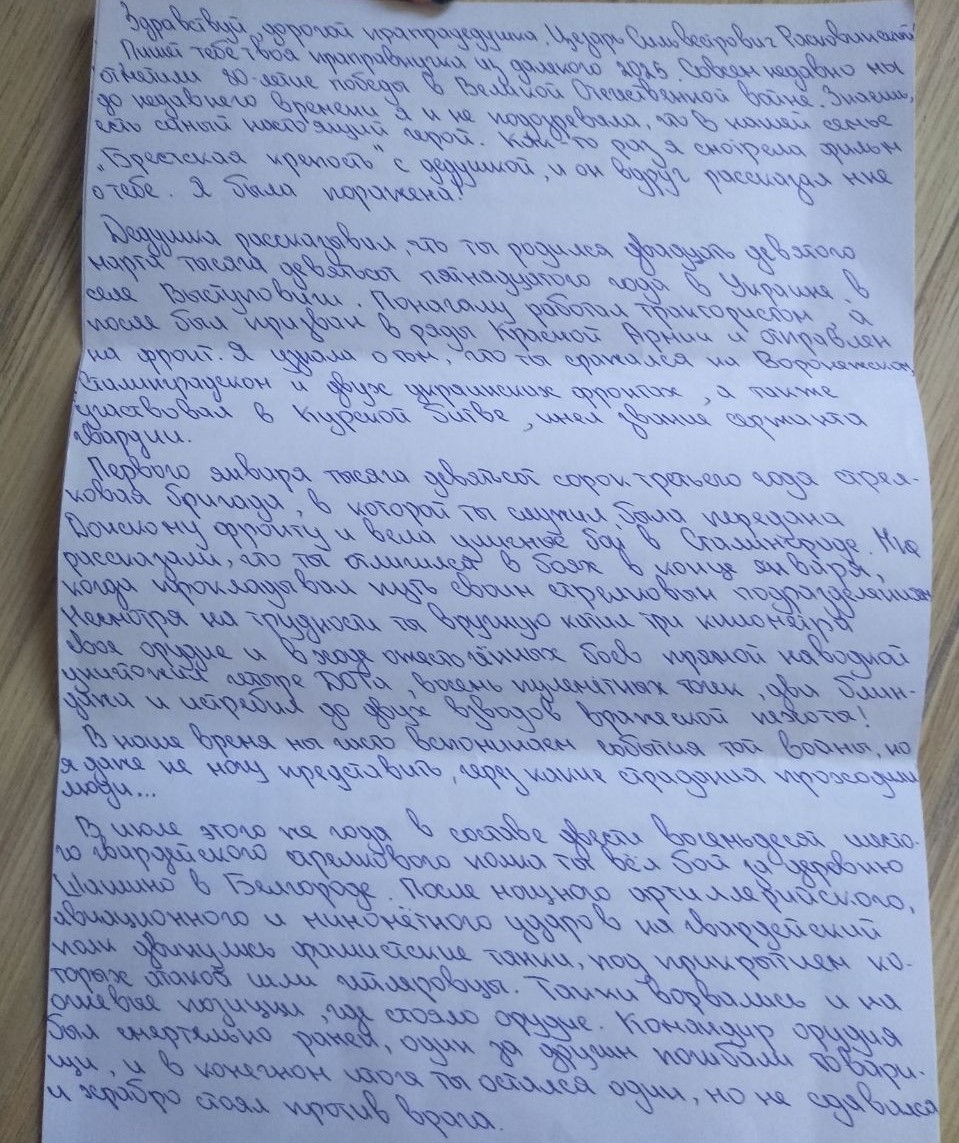 Здравствуй, дорогой прапрадедушка, Цезарь Сильвестрович Расковинский!
Пишет тебе твоя праправнучка из далекого 2025. Совсем недавно мы
отметили 80-летие победы в Великой Отечественной войне. Знаешь,
до недавнего времени я и не подозревала, что в нашей семье
есть самый настоящий герой. Как-то раз я смотрела фильм
"Брестская крепость" с дедушкой, и он вдруг рассказал мне
о тебе. Я была поражена!
Дедушка рассказывал, что ты родился двадцать девятого
марта тысяча девятьсот пятнадцатого года в Украине, в
селе Выступовичи. Поначалу работал трактористом, а
после был призван в ряды Красной Армии и отправлен
на фронт. Я узнала о том, что ты сражался на Воронежском,
Сталинградском и двух украинских фронтах, а также
участвовал в Курской битве, имел звание сержанта
гвардии.
Первого января тысяча девятьсот сорок третьего года стрел-
ковая бригада, в которой ты служил, была передана
Донскому фронту и вела уличные бои в Сталинграде. Мне
рассказали, что ты отличился в боях в конце января,
когда прокладывал путь своим стрелковым подразделениям.
Несмотря на трудности ты вручную катил три километра
свое орудие и в ходе ожесточённых боев прямой наводкой
уничтожил четыре ДОТа, восемь пулемётных точек, два блин-
дажа и истребил до двух взводов вражеской пехоты!
В наше время мы часто вспоминаем события той войны, но
я даже не могу представить, через какие страдания проходили
люди...
В июле этого же года в составе двести восемьдесят шесто-
го гвардейского стрелкового полка ты вёл бой за деревню
Шишино в Белгороде. После мощного артиллерийского,
авиационного и миномётного ударов на гвардейский
полк двинулись фашистские танки, под прикрытием ко-
торых атакой шли гитлеровцы. Танки ворвались и на
огневые позиции, где стояло орудие. Командир орудия
был смертельно ранен, один за другим погибали товари-
щи, и в конечном итоге ты остался один, но не сдавался
и храбро стоял против врага.